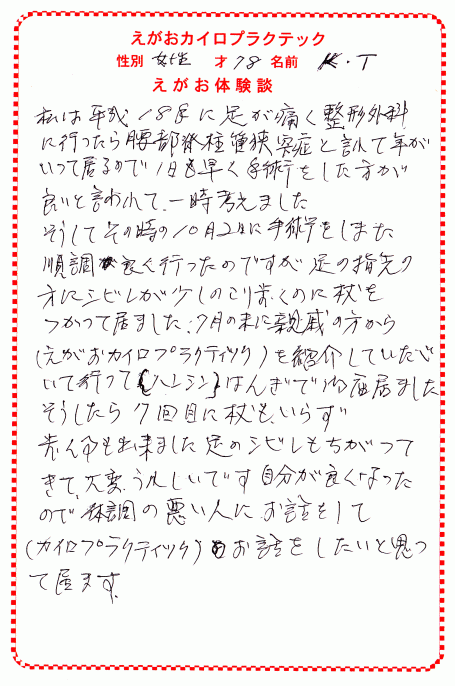 えがおカイロプラクテック
性別 女性 才 78 名前 K・T
えがお体験談
私は平成18年に足が痛く整形外科
に行ったら腰部脊柱管狭窄症と言れて年が
いって居るので1日も早く手術をした方が
良いと言われて、一時考えました
そうしてその時の10月2日に手術をしまた
順調に良く行ったのですが足の指先の
方にシビレが少しのこり歩くのに杖を
つかって居ました、7月の末に親戚の方から
(えがおカイロプラクティック)を紹介していただ
いて行って
そうしたら7回目に杖もいらず
歩く事も出来ました足のシビレもちがつて
きて、大変うれしいです自分が良くなった
ので体調の悪い人にお話をして
(カイロプラクティック)のお話をしたいと思つ
て居ます。